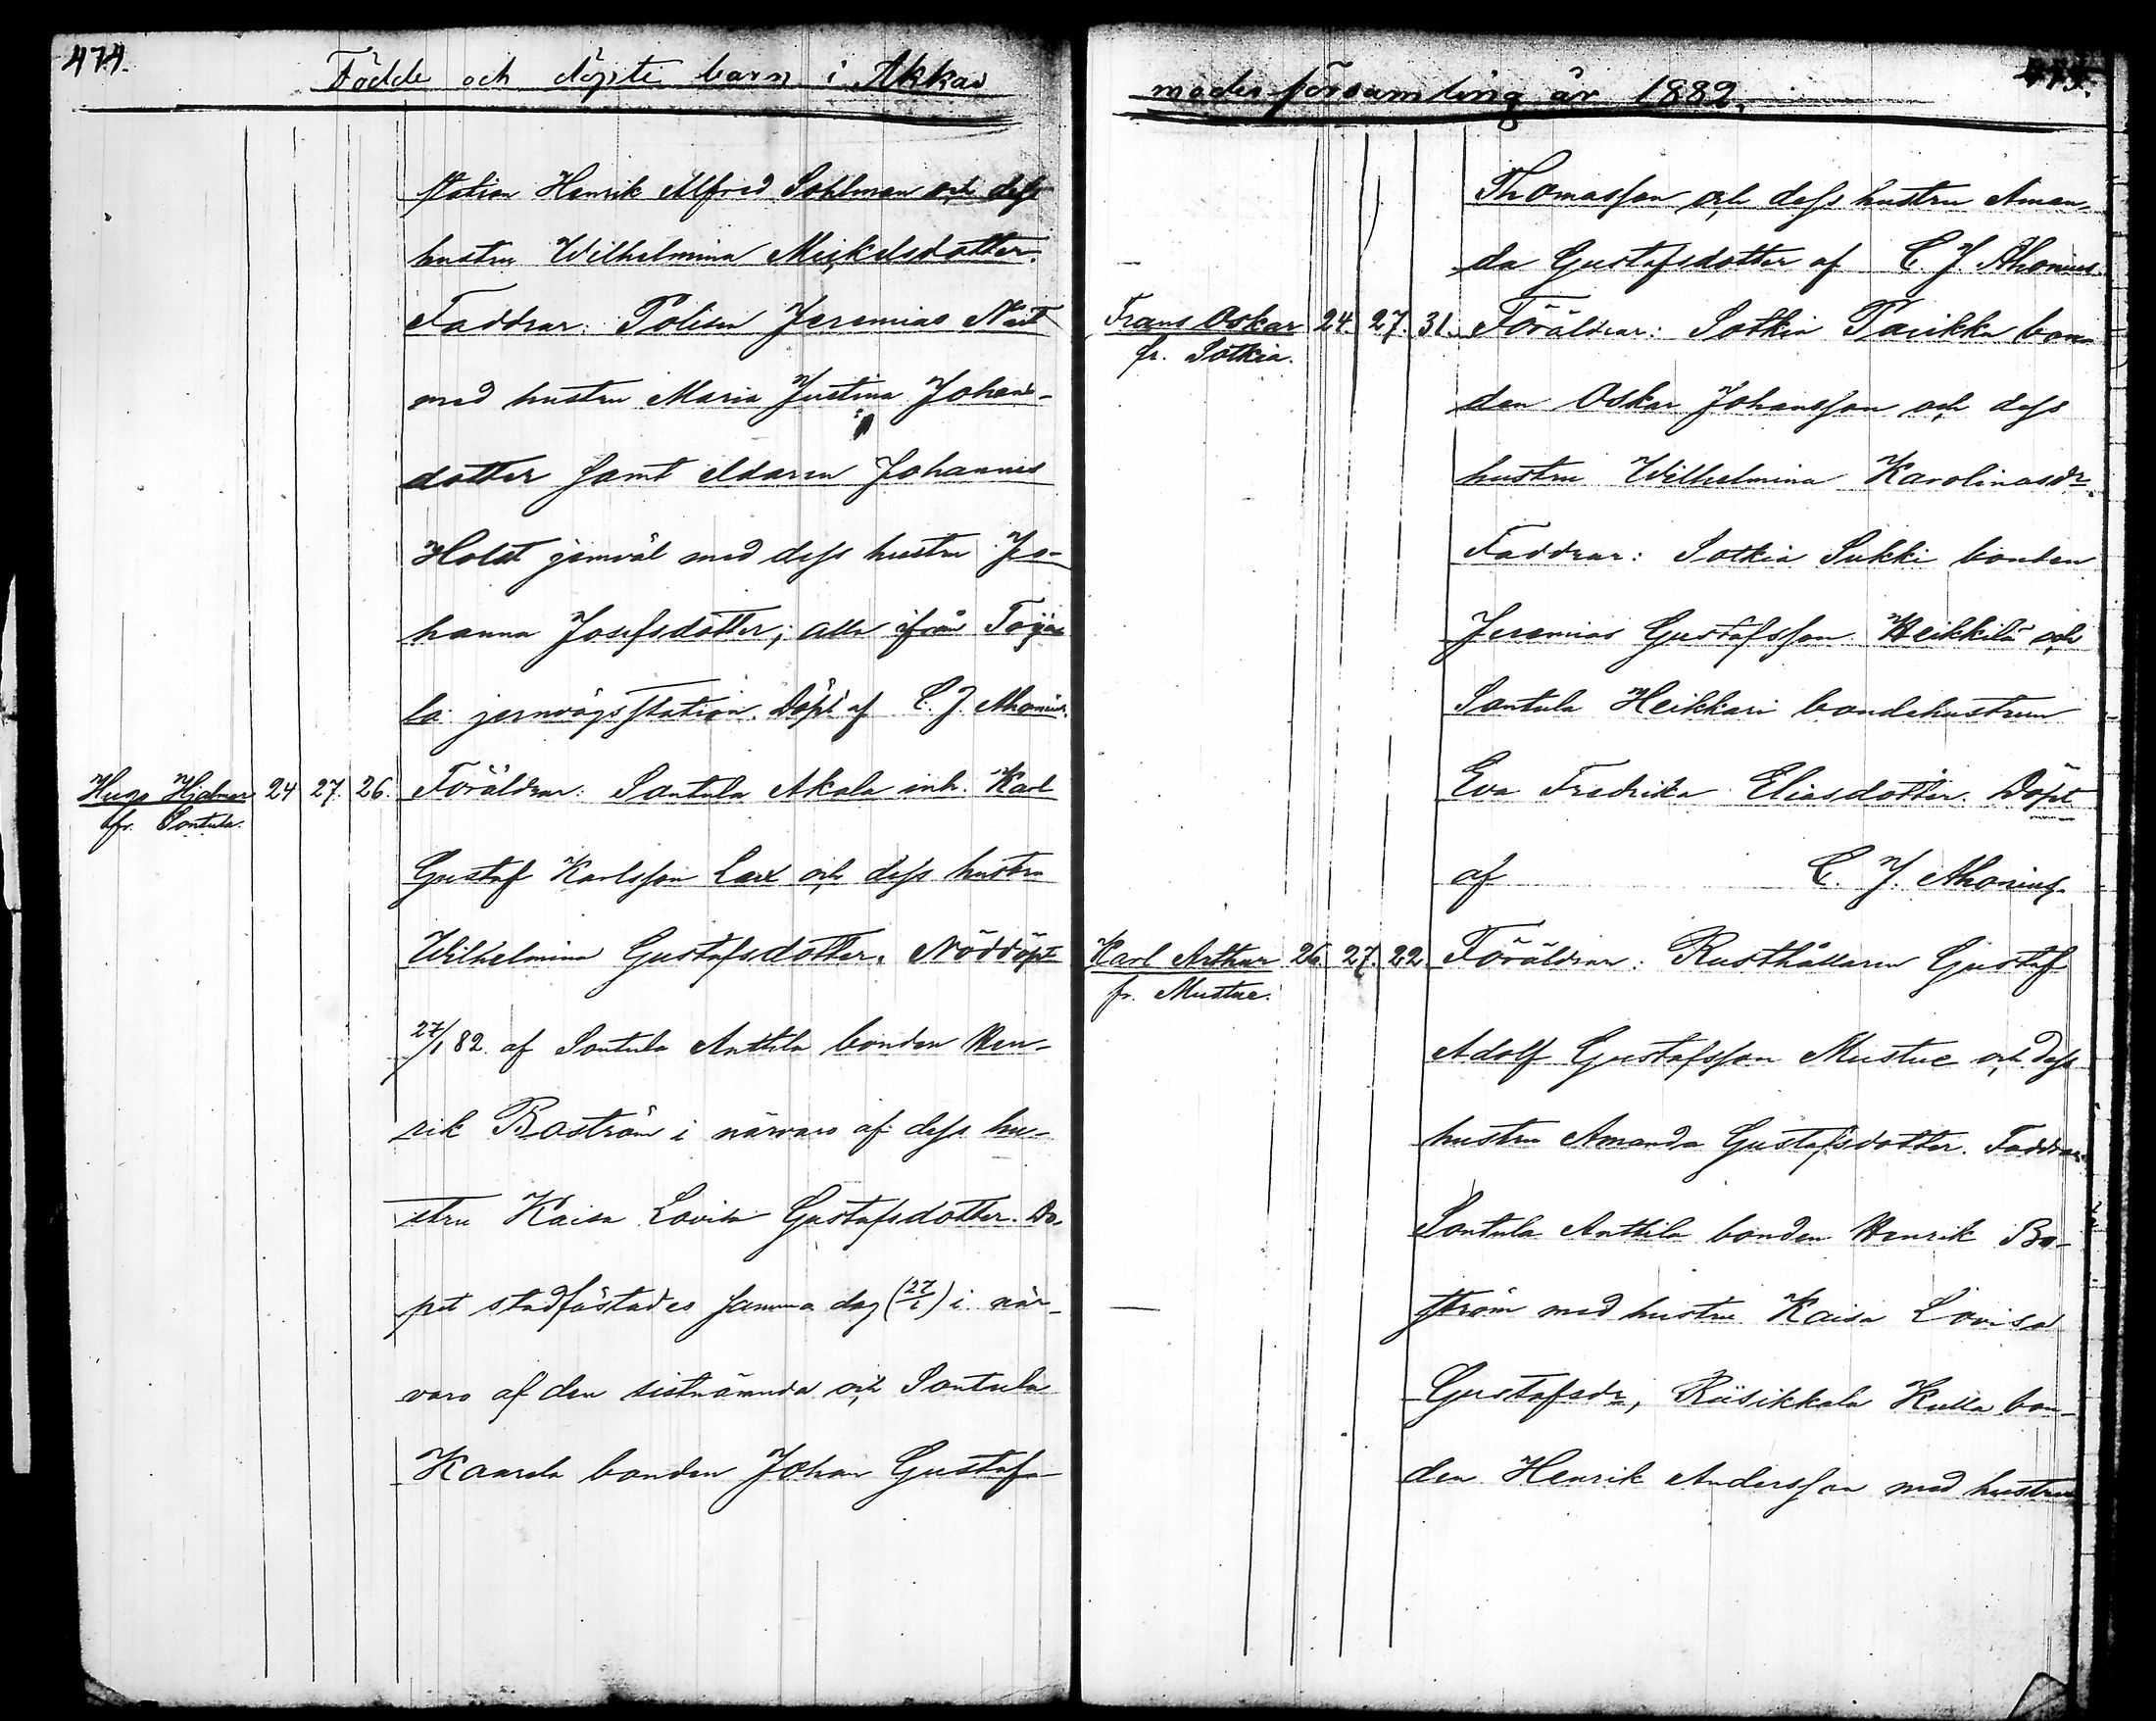 474.
Födde och döpte barn i Akkas
station Henrik Alfred Sohlman och dess
hustru Wilhelmina Mickelsdotter.
Faddrar: Polisen Jeremias
med hustru Maria Justina Johans-
dotter samt eldaren Johannes
Holst jemväl med dess hustru Jo-
hanna Josefsdotter; alla ifrån Toija-
la jernvägsstation. Döpt af C. J. Ahonius.
Hugo Hjalmar 24 27. 26. Föräldrar: Sontula Akala inh. Karl
fr. Sontula.
Gustaf Karlsson Lax och dess hustru
Wilhelmina Gustafsdotter. Nöddöpt
27/1 82. af Sontula Anttila bonden Hen-
rik Boström i närvaro af dess hu-
stru Kaisa Lovisa Gustafsdotter. Do-
pet stadfästades samma dag (27/1) i när-
varo af den sistnämnda och Sontula
Kaarela bonden Johan Gustafs-
475.
moderförsamling år 1882.
Thomasson och dess hustru Aman-
da Gustafsdotter af C. J. Ahonius.
Frans Oskar 24. 27. 31. Föräldrar: Sotkia Parikka bon-
fr. Sotkia.
den Oskar Johansson och dess
hustru Wilhelmina Karolinasdr
Faddrar: Sotkia Sukki bonden
Jeremias Gustafsson Heikkilä och
Sontula Heikkari bondehustrun
Eva Fredrika Eliasdotter. Döpt
af C. J. Ahonius.
Karl Arthur 26. 27. 22. Föräldrar: Rusthållaren Gustaf
fr. Mustue.
Adolf Gustafsson Mustue och dess
hustru Amanda Gustafsdotter. Faddrar:
Sontula Anttila bonden Henrik Bo-
ström med hustru Kaisa Lovisa
Gustafsdr, Riisikkala Kulla bon-
den Henrik Andersson med hustru